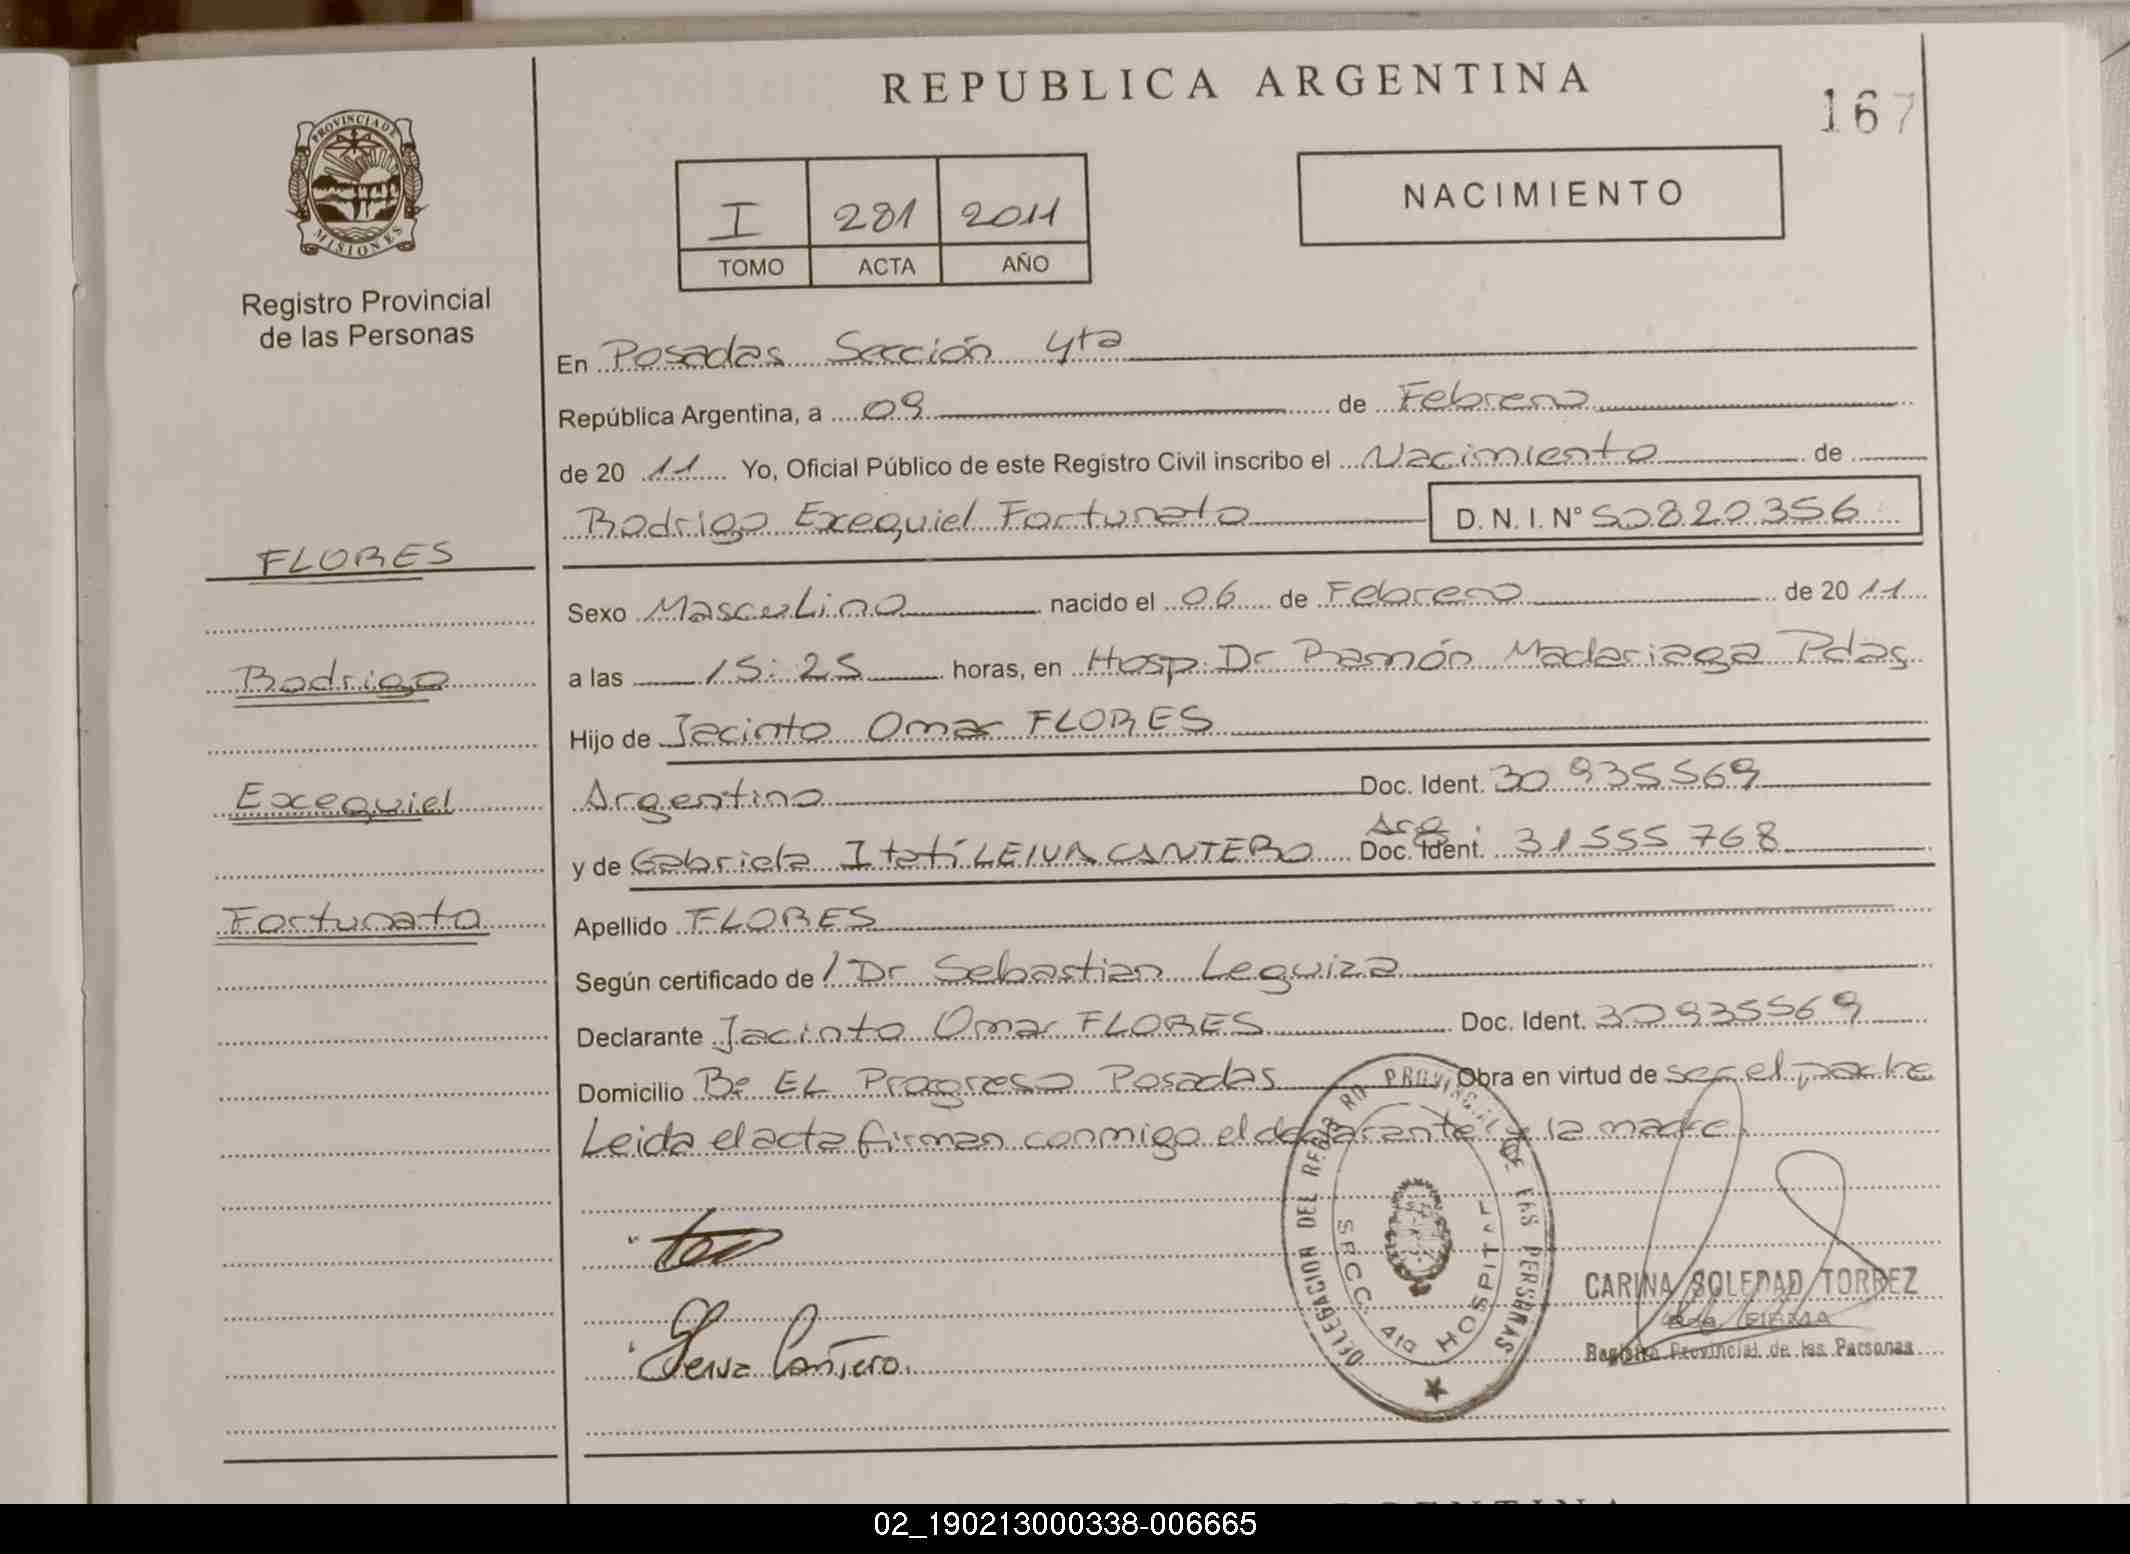 REPUBLICA ARGENTINA
167
PROVINCIA DE
MISIONES
Registro Provincial
de las Personas
I 281 2011
TOMO ACTA AÑO
NACIMIENTO
En Posadas Sección 4ta
República Argentina, a 09 de Febrero
de 20 11 Yo, Oficial Público de este Registro Civil inscribo el Nacimiento de
Rodrigo Exequiel Fortunato D. N. I. Nº 50820356
FLORES
Rodrigo
Exequiel
Fortunato
Sexo Masculino nacido el 06 de Febrero de 20 11
a las 15:25 horas, en Hosp. Dr Ramón Madariaga Pdas
Hijo de Jacinto Omar FLORES
Argentino Doc. Ident. 30 935569
Arg.
y de Gabriela Itatí LEIVA CANTERO Doc. Ident. 31555 768
Apellido FLORES
Según certificado de Dr Sebastian Leguiza
Declarante Jacinto Omar FLORES Doc. Ident. 30935569
Domicilio Bº EL Progreso Posadas Obra en virtud de ser el padre
Leida el acta firman conmigo el declarante y la madre
DELEGACION DEL REGISTRO PROVINCIAL DE LAS PERSONAS
HOSPITAL
Leiva Cantero.
CARINA SOLEDAD TORREZ
FIRMA
Registro Provincial de las Personas
02_190213000338-006665